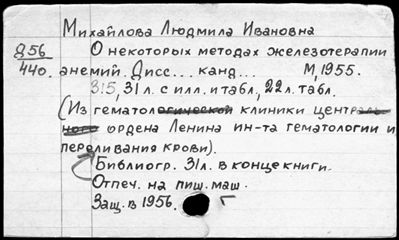 Михайлова Людмила Ивановна
Д56 О некоторых методах железотерапии
440. анемий. Дисс... канд... М, 1955.
315, 31 л. с илл. и табл., 22 л. табл.
(Из гематологической клиники централь
ного ордена Ленина ин-та гематологии и
переливания крови).
Библиогр. 31 л. в конце книги.
Отпеч. на пиш. маш.
Защ. в 1956.